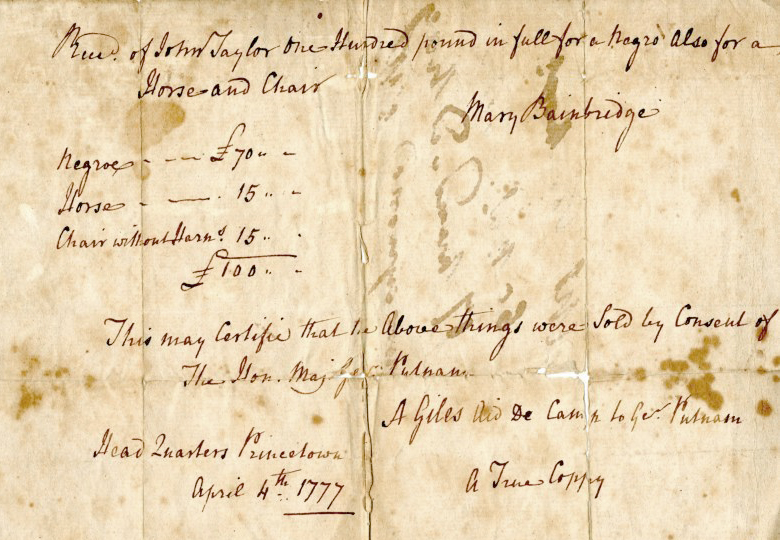 Recd. of John Taylor One Hundred pound in full for a Negro Also for a
Horse and Chair
Mary Bainbridge
Negroe - - - £70 " -
Horse - - . 15 " -
Chair without Harns. 15 " .
£100 " -
This may Certifie that he Above things were Sold by Consent of
The Hon. Maj Putnam
A Giles Aid De Camp to Gel. Putnam
Head Quarters Princetown
April 4th. 1777
A True Coppy